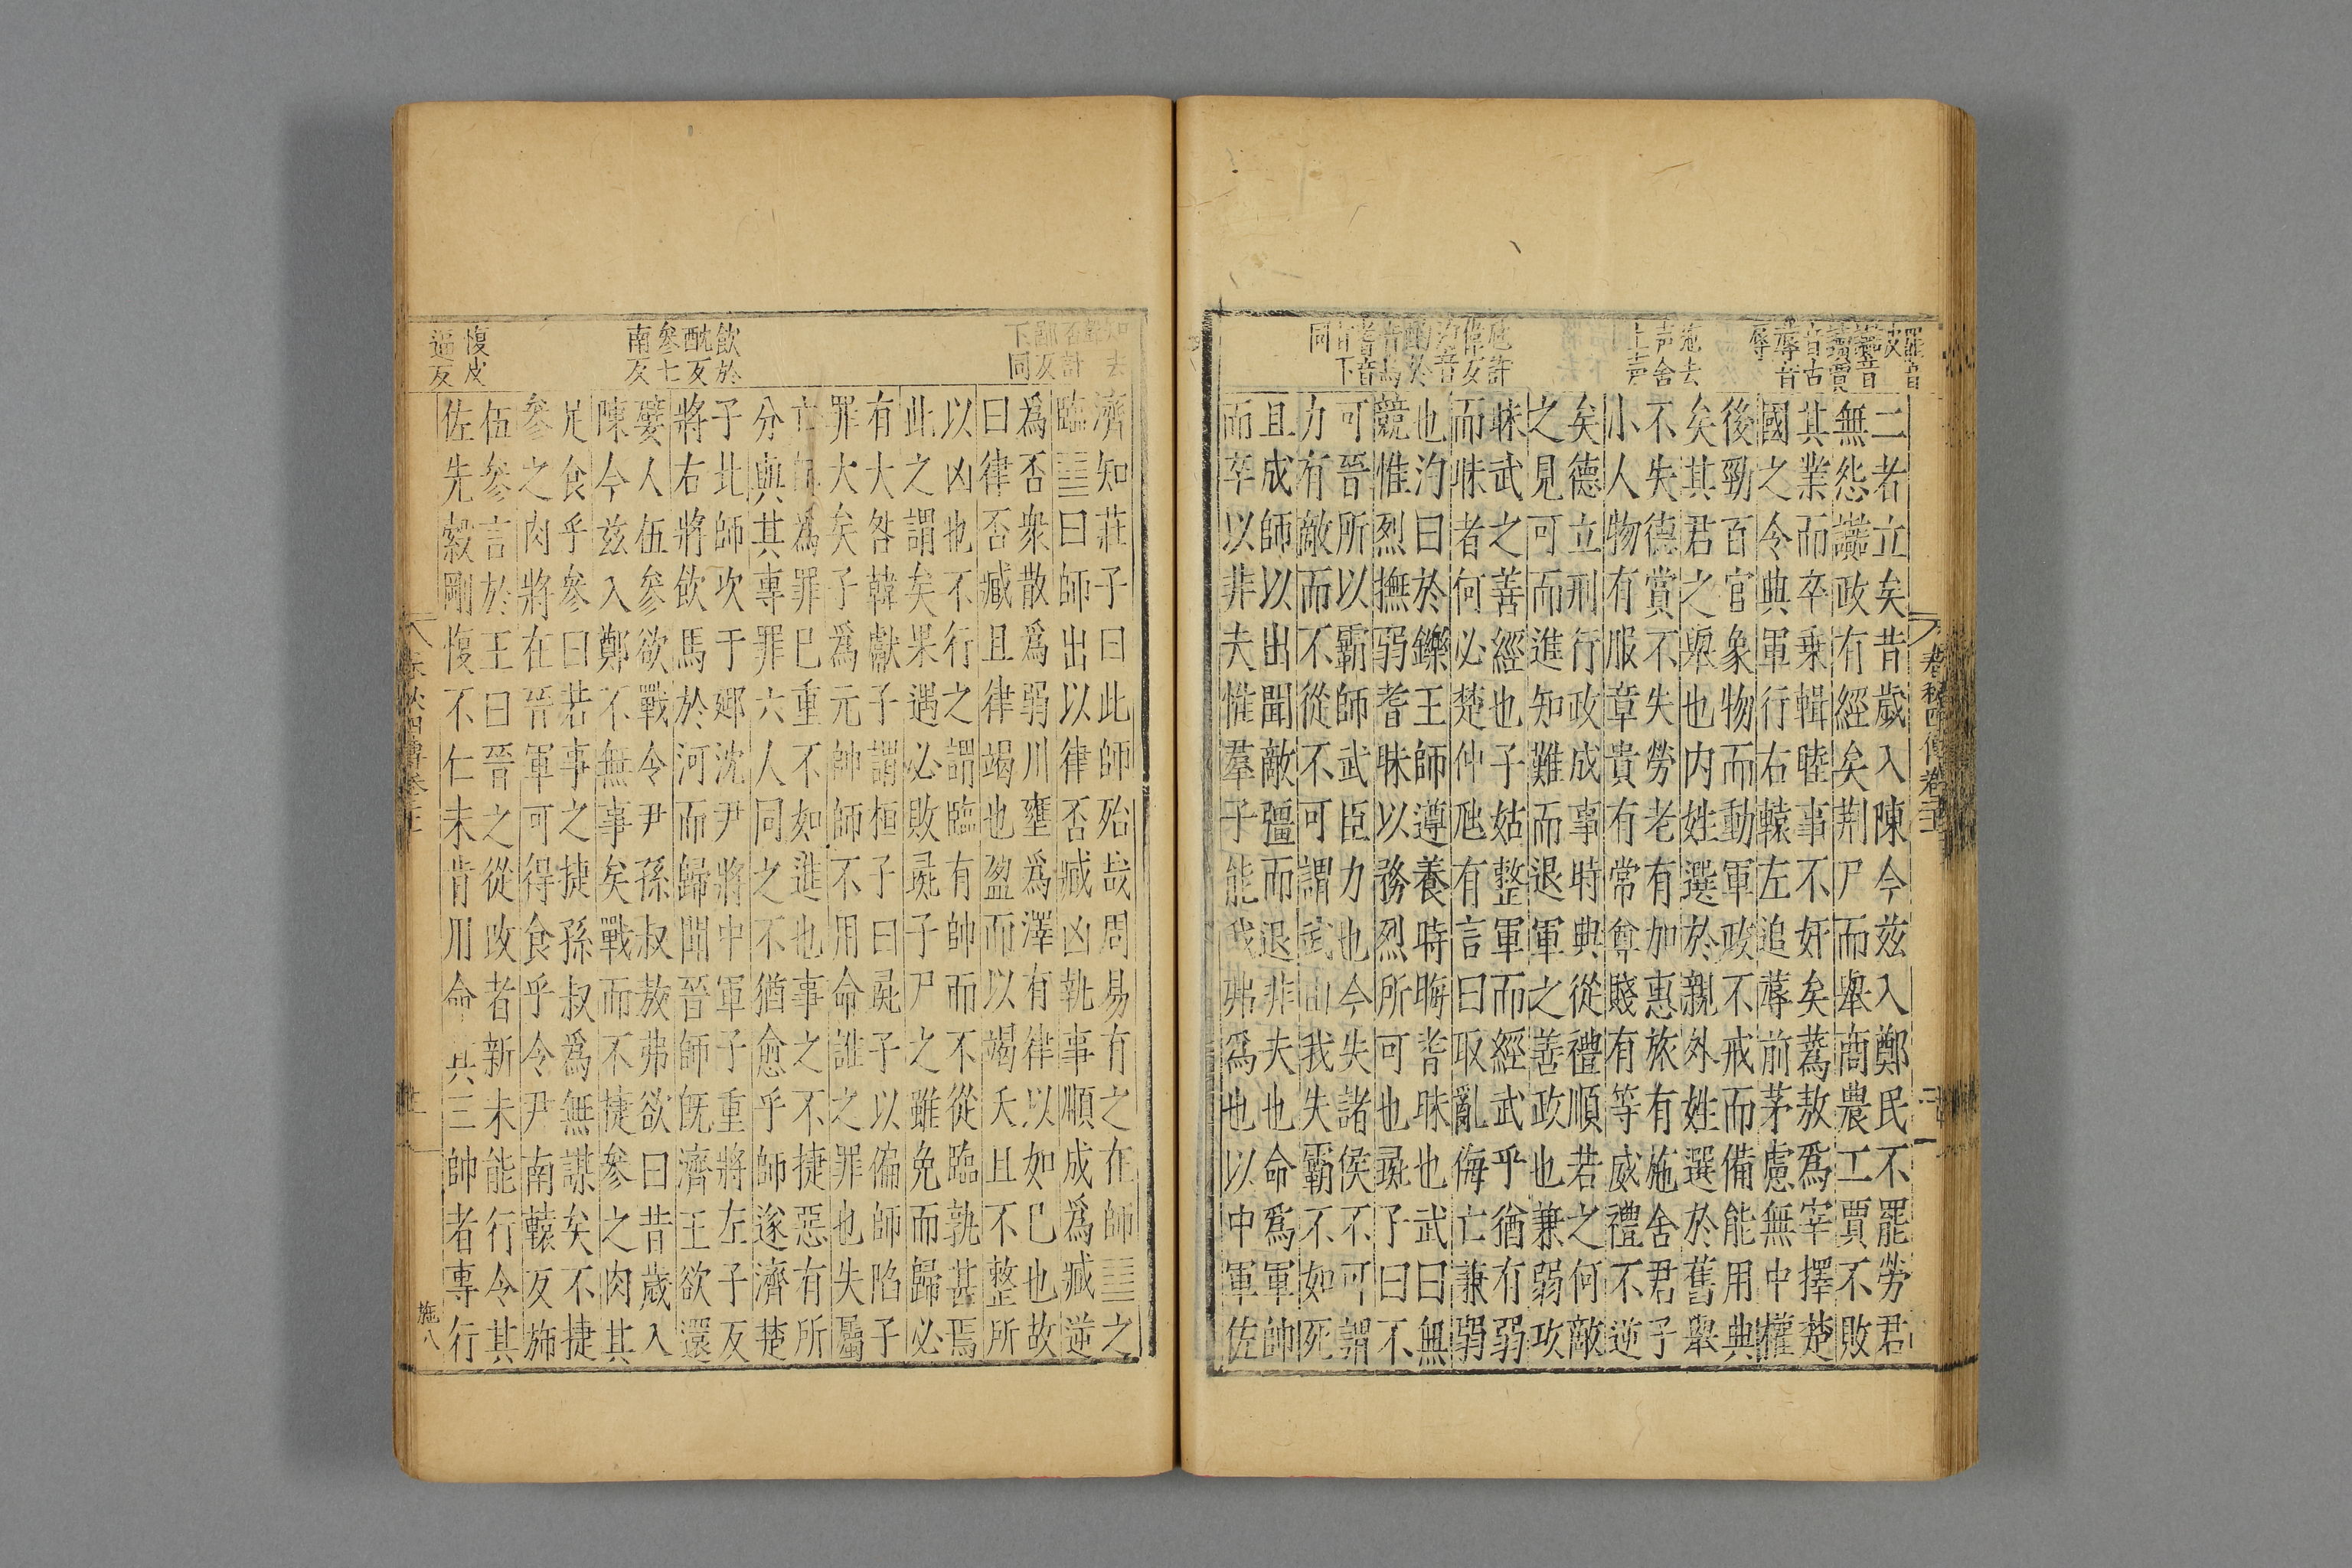 罷音
皮
讟音
讀賈
音古
蓐音
辱
施去
声舍
上声
虺許
偉反
汋音
酌於
音烏
耆音
旨下
同
二者立矣昔歲入陳今茲入鄭民不罷勞君
無怨讟政有經矣荆尸而舉商農工賈不敗
其業而卒乗輯睦事不奸矣蔿敖爲宰擇楚
國之令典軍行右轅左追蓐前茅慮無中權
後勁百官象物而動軍政不戒而備能用典
矣其君之舉也内姓選於親外姓選於舊舉
不失德賞不失勞老有加惠旅有施舍君子
小人物有服章貴有常尊賤有等威禮不逆
矣德立刑行政成事時典從禮順若之何敵
之見可而進知難而退軍之善政也兼弱攻
昧武之善經也子姑整軍而經武乎猶有弱
而昧者何必楚仲虺有言曰取亂侮亡兼弱
也汋曰於鑠王師遵養時晦耆昧也武曰無
競惟烈撫弱耆昧以務烈所可也彘子曰不
可晉所以霸師武臣力也今失諸侯不可謂
力有敵而不從不可謂武由我失霸不如死
且成師以出聞敵彊而退非夫也命爲軍帥
而卒以非夫惟羣子能我弗爲也以中軍佐
春秋四傳卷二十
否計
鄙反
下同
飲於
酖反
參七
南反
愎皮
逼反
濟知莊子曰此師殆哉周易有之在師䷆之
臨䷒曰師出以律否臧凶執事順成爲臧逆
爲否衆散爲弱川壅爲澤有律以如已也故
曰律否臧且律竭也盈而以竭夭且不整所
以凶也不行之謂臨有帥而不從臨孰甚焉
此之謂矣果遇必敗彘子尸之雖免而歸必
有大咎韓獻子謂桓子曰彘子以偏師陷子
罪大矣子爲元帥師不用命誰之罪也失屬
亡師爲罪已重不如進也事之不捷惡有所
分與其專罪六人同之不猶愈乎師遂濟楚
子北師次于郔沈尹將中軍子重將左子反
將右將飲馬於河而歸聞晉師旣濟王欲還
嬖人伍參欲戰令尹孫叔敖弗欲曰昔歲入
陳今茲入鄭不無事矣戰而不捷參之肉其
足食乎參曰若事之捷孫叔爲無謀矣不捷
參之肉將在晉軍可得食乎令尹南轅反斾
伍參言於王曰晉之從政者新未能行令其
佐先縠剛愎不仁未肯用命其三帥者專行
施八